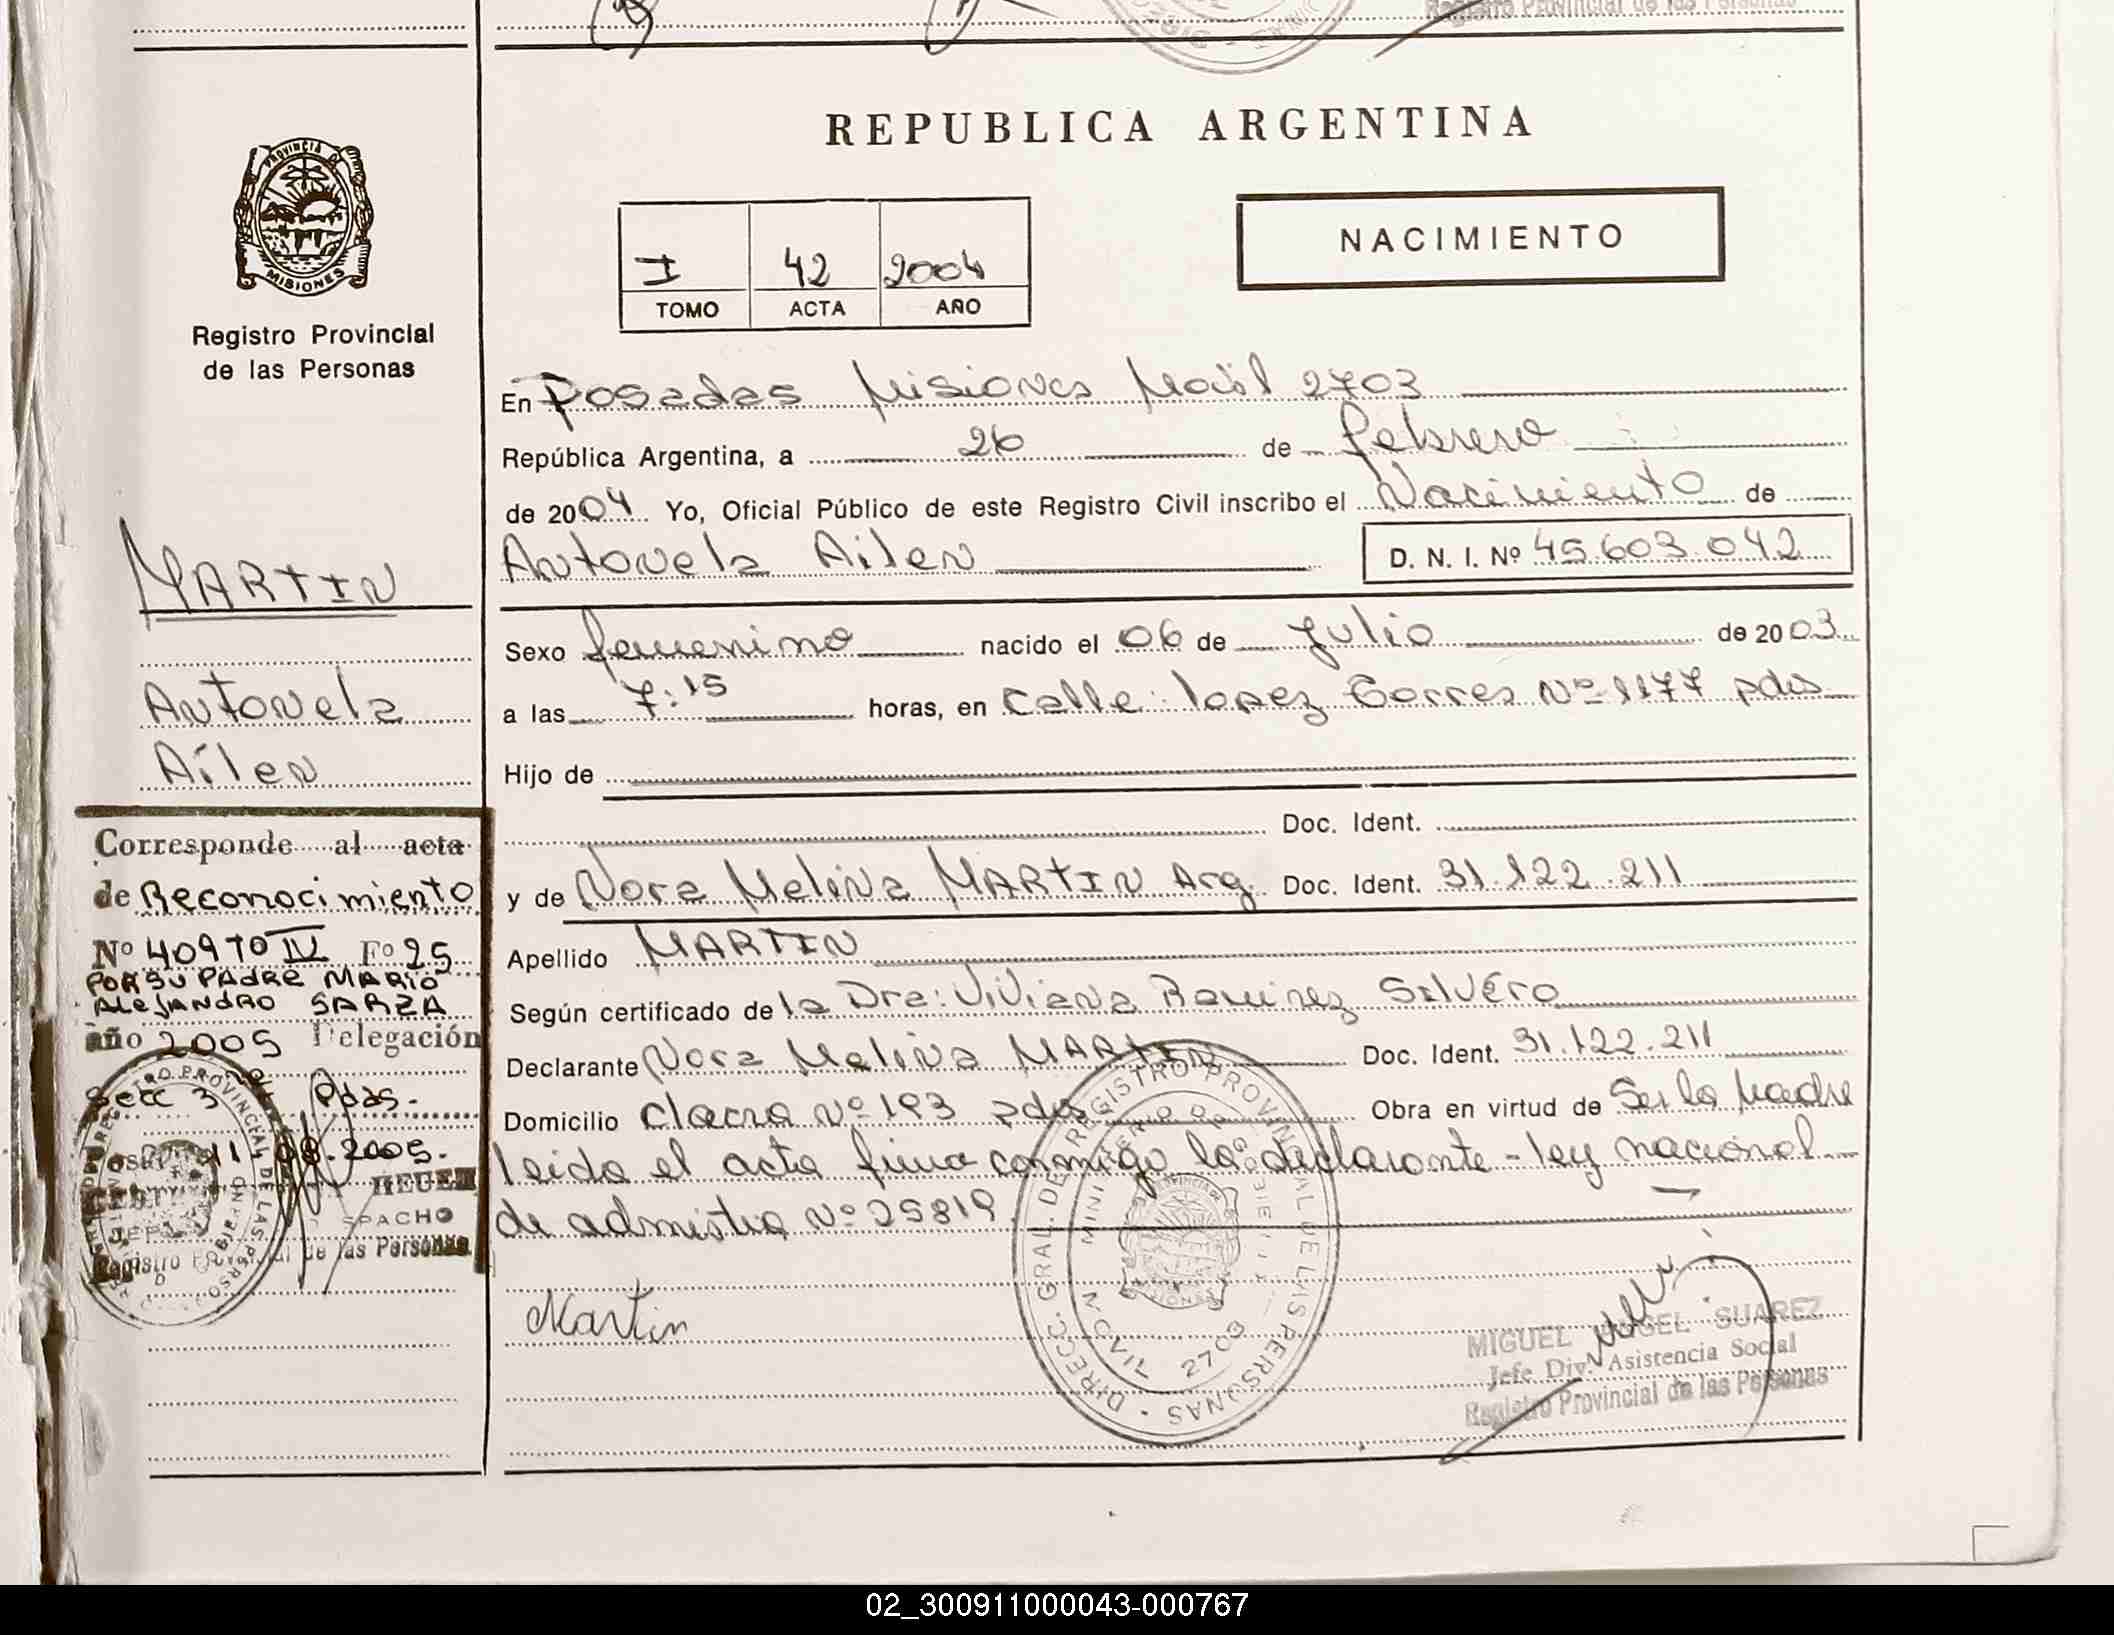 Registro Provincial de las Personas
REPUBLICA ARGENTINA
PROVINCIA DE
MISIONES
Registro Provincial
de las Personas
I 42 2004
TOMO ACTA AÑO
NACIMIENTO
En Posadas Misiones Movil 2703
República Argentina, a 26 de febrero
de 2004 Yo, Oficial Público de este Registro Civil inscribo el Nacimiento de
Antonela Ailen D. N. I. Nº 45.603.042
Sexo femenino nacido el 06 de Julio de 2003
a las 7:15 horas, en Calle: lopez Torres Nº 1177 pdas
Hijo de
Doc. Ident.
y de Nora Melina MARTIN Arg. Doc. Ident. 31.122.211
Apellido MARTIN
Según certificado de la Dra: Viviana Ramirez Silvero
Declarante Nora Melina MARTIN Doc. Ident. 31.122.211
Domicilio Chacra Nº 193 pdas Obra en virtud de Ser la Madre
leida el acta firma conmigo la declarante - ley nacional
de admistia Nº 25819
Martin
MIGUEL ANGEL SUAREZ
Jefe Div. Asistencia Social
Registro Provincial de las Personas
DIRECC. GRAL. DE REGISTRO PROVINCIAL DE LAS PERSONAS
MOVIL 2703
MARTIN
Antonela
Aílen
Corresponde al acta
de Reconocimiento
Nº 409 TO IV Fº 25
POR SU PADRE MARIO
ALEJANDRO SARZA
año 2005 Delegación
Secc 3ª Pdas.
11 - 08 - 2005.
DESPACHO
Registro Provincial de las Personas
02_300911000043-000767